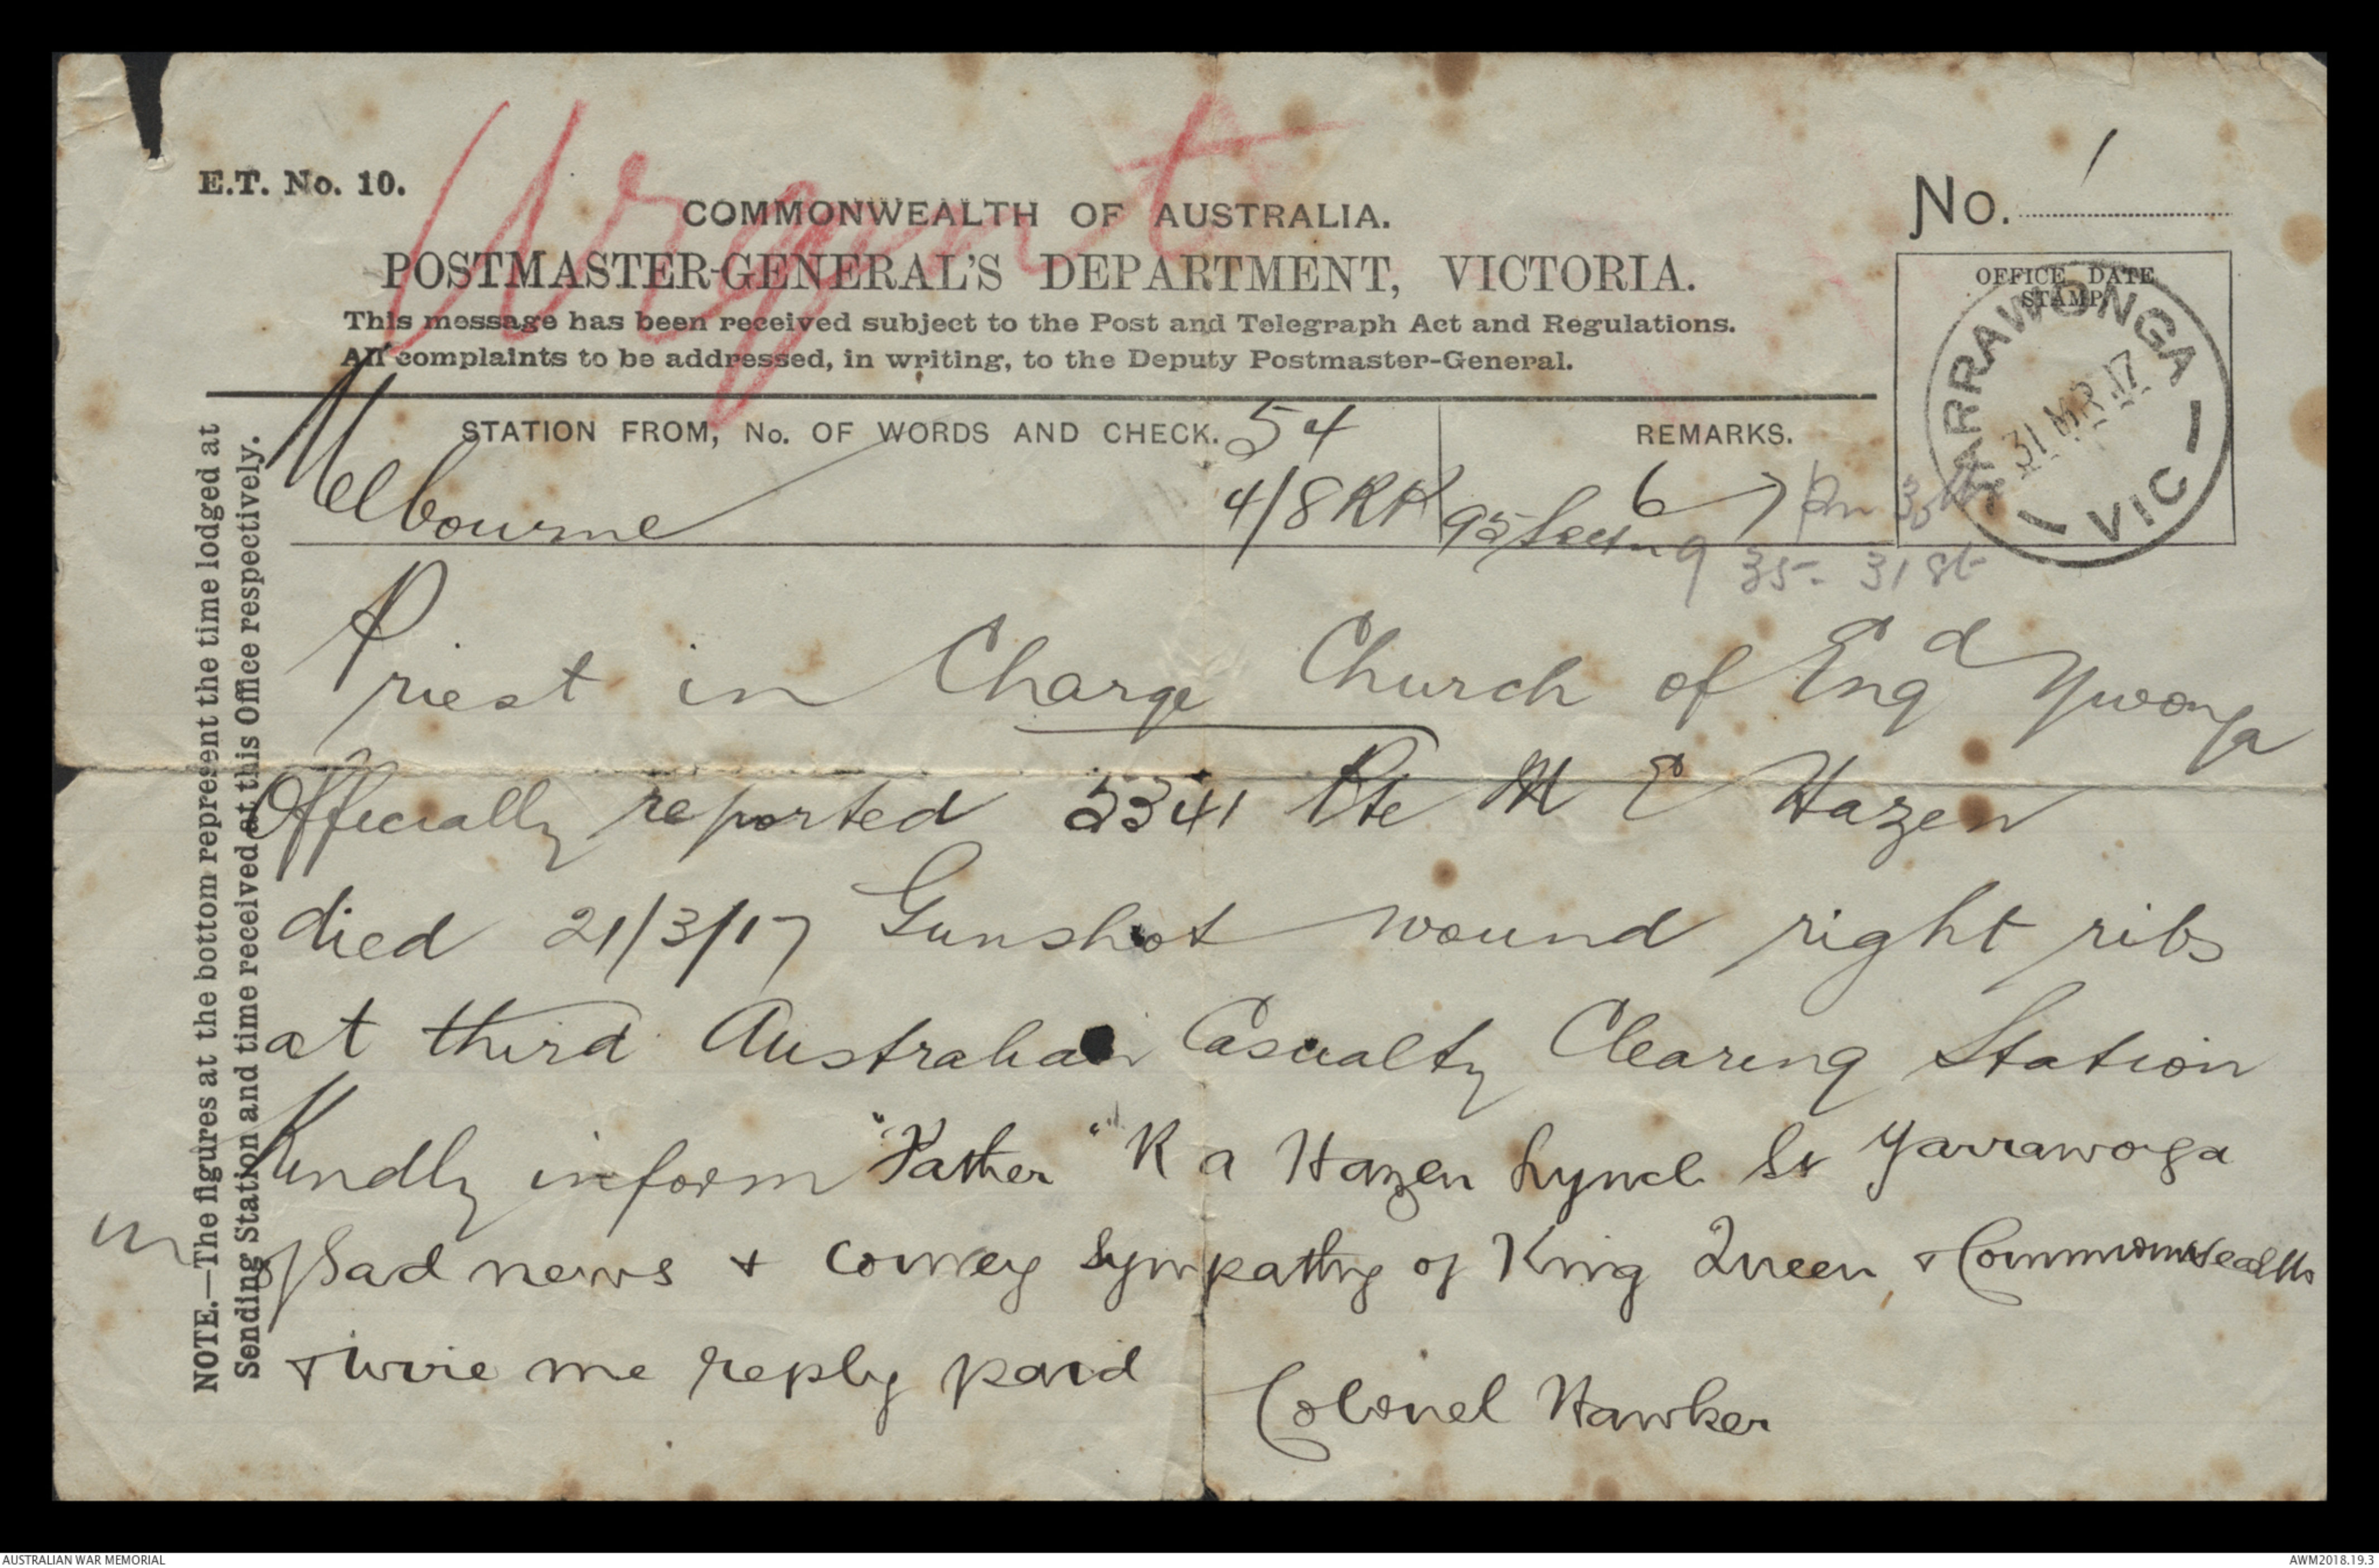 Urgent
E.T. No. 10.
No. 1
COMMONWEALTH OF AUSTRALIA.
POSTMASTER-GENERAL'S DEPARTMENT, VICTORIA.
This message has been received subject to the Post and Telegraph Act and Regulations.
All complaints to be addressed, in writing, to the Deputy Postmaster-General.
OFFICE DATE
STAMP.
YARRAWONGA
31 MR 17
VIC
STATION FROM, No. OF WORDS AND CHECK. 54
REMARKS.
Melbourne 4/8 RK 95 6 pm 30th
9 35 - 31st
Priest in Charge Church of Engd Ywonga
Officially reported 5341 Pte M E Hazen
died 21/3/17 Gunshot wound right ribs
at third Australian Casualty Clearing Station
Kindly inform "Father" R a Hazen Lynch St Yarrawonga
of sad news & convey sympathy of King Queen & Commonwealth
& wire me reply paid
Colonel Hawker
NOTE.—The figures at the bottom represent the time lodged at
Sending Station and time received at this Office respectively.
AUSTRALIAN WAR MEMORIAL
AWM2018.19.3